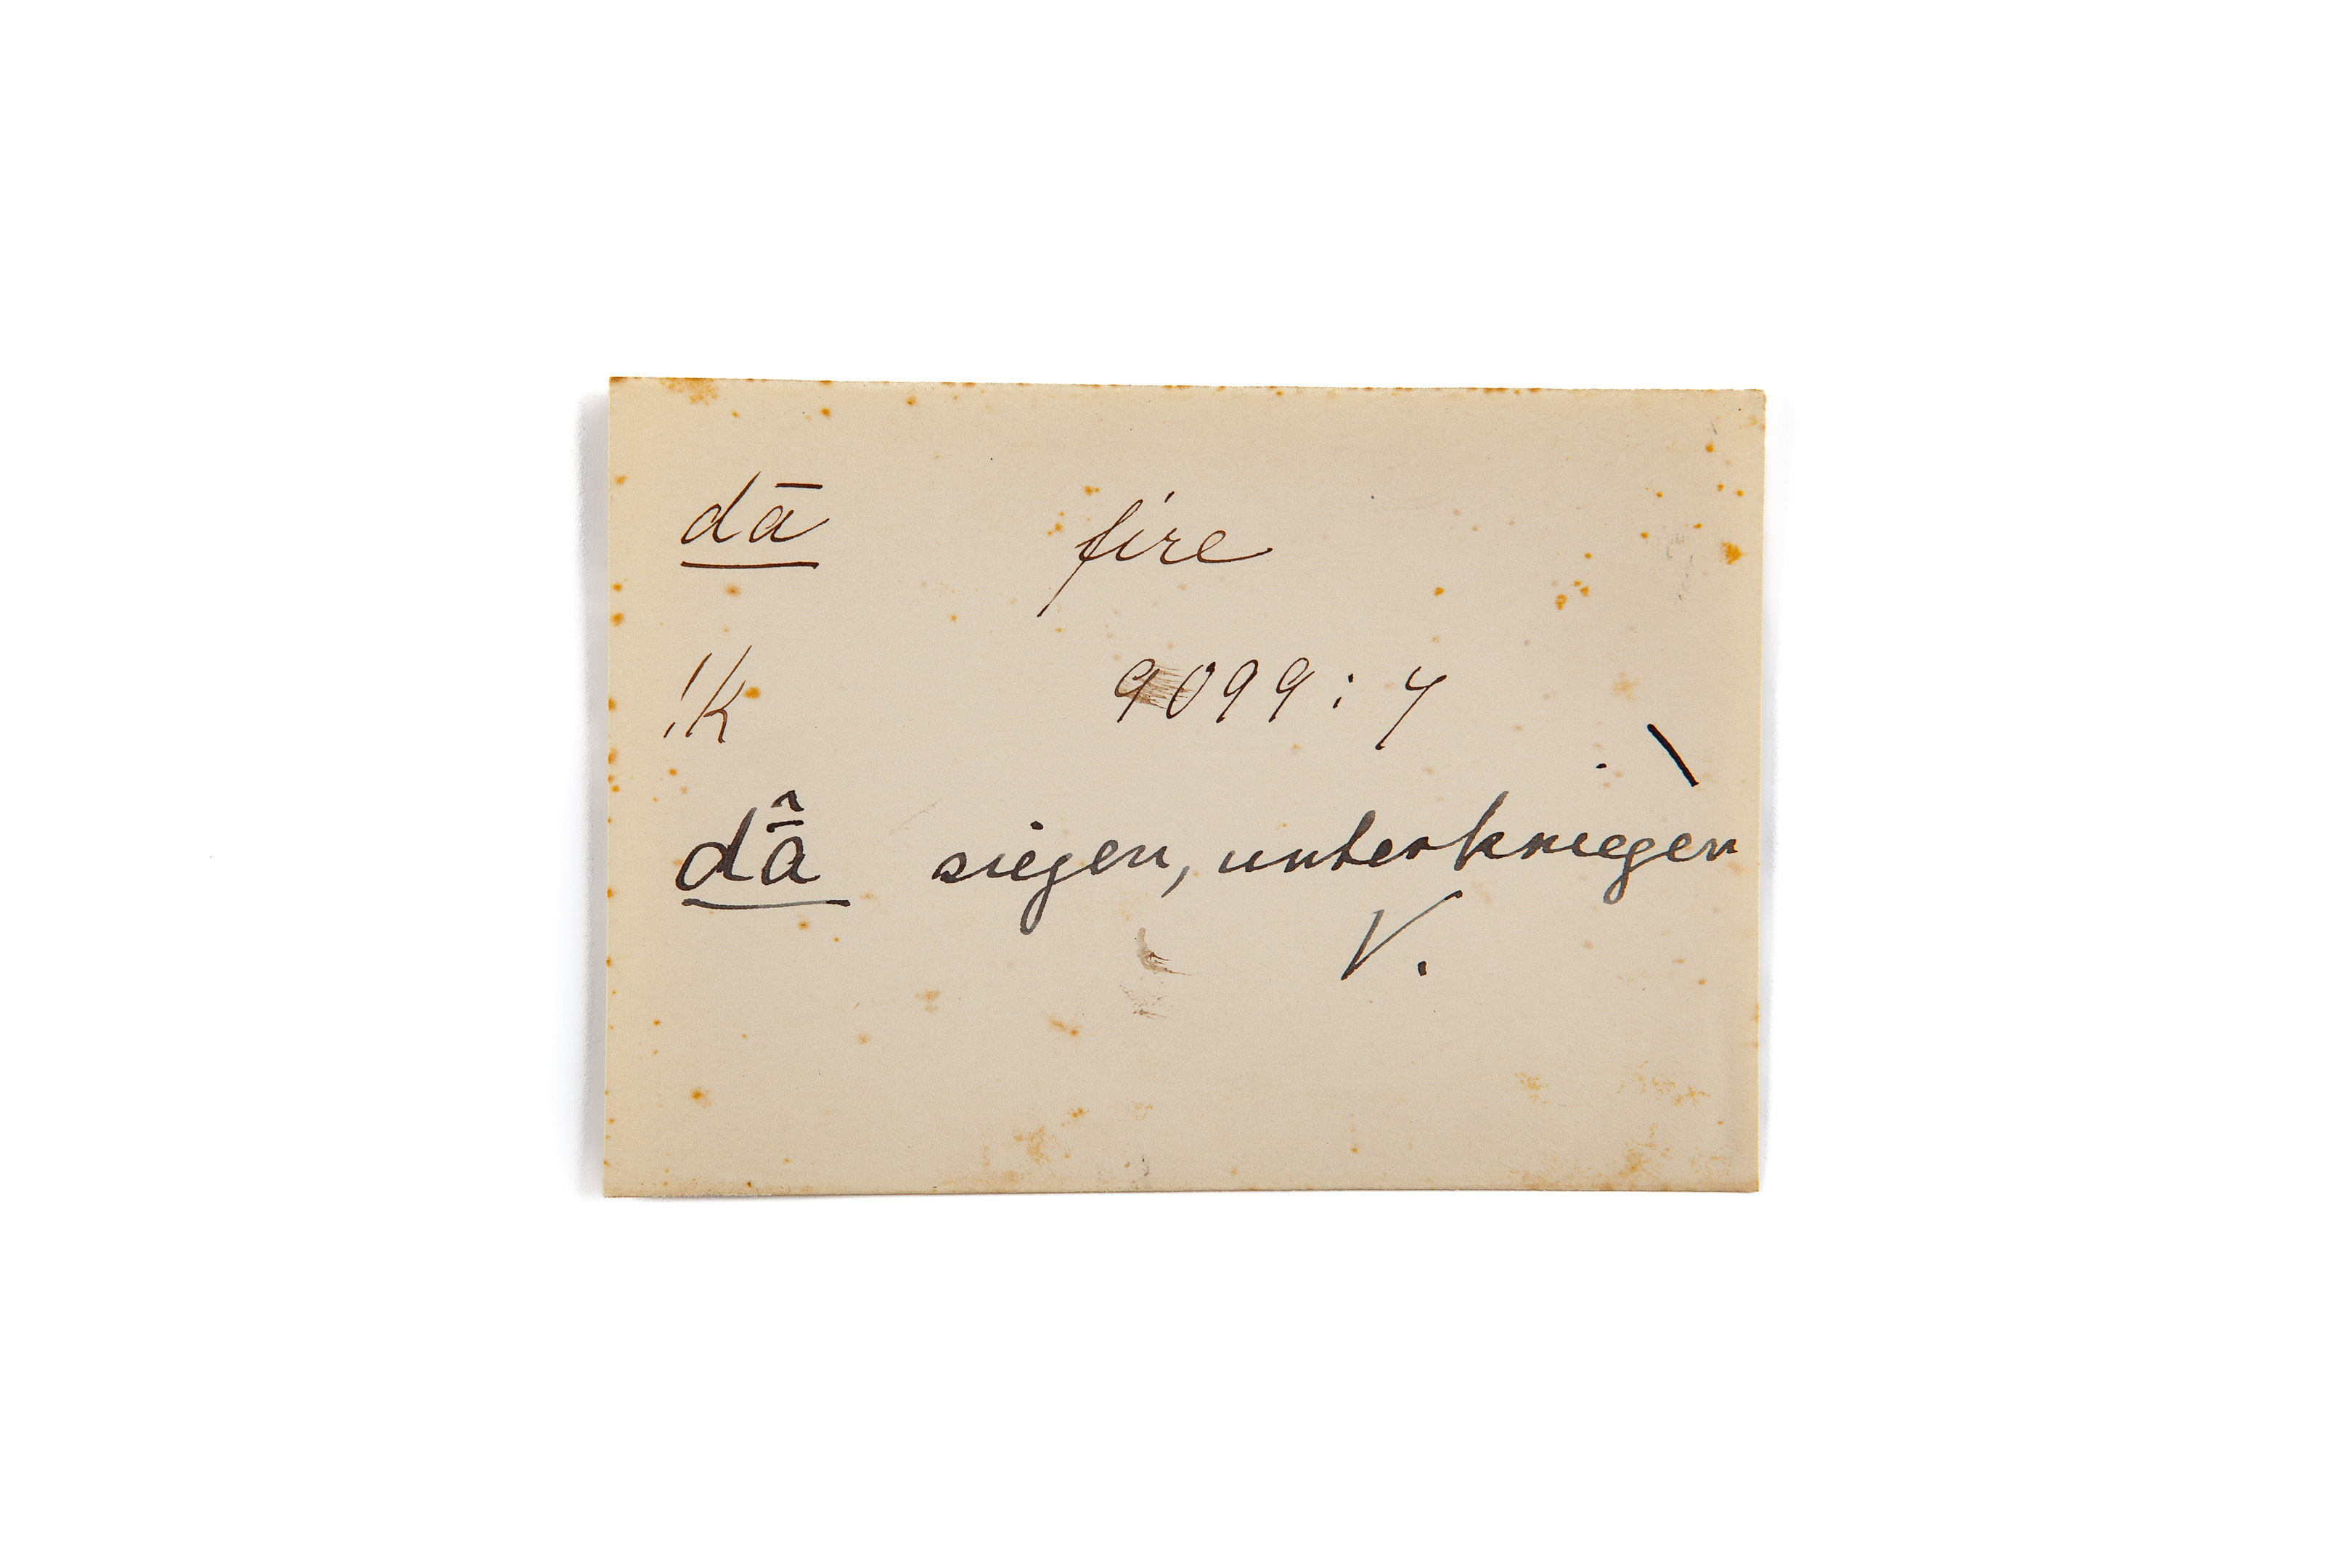 dā fire
!k 9099 : 7
dā̂ siegen, unterkriegen
V.